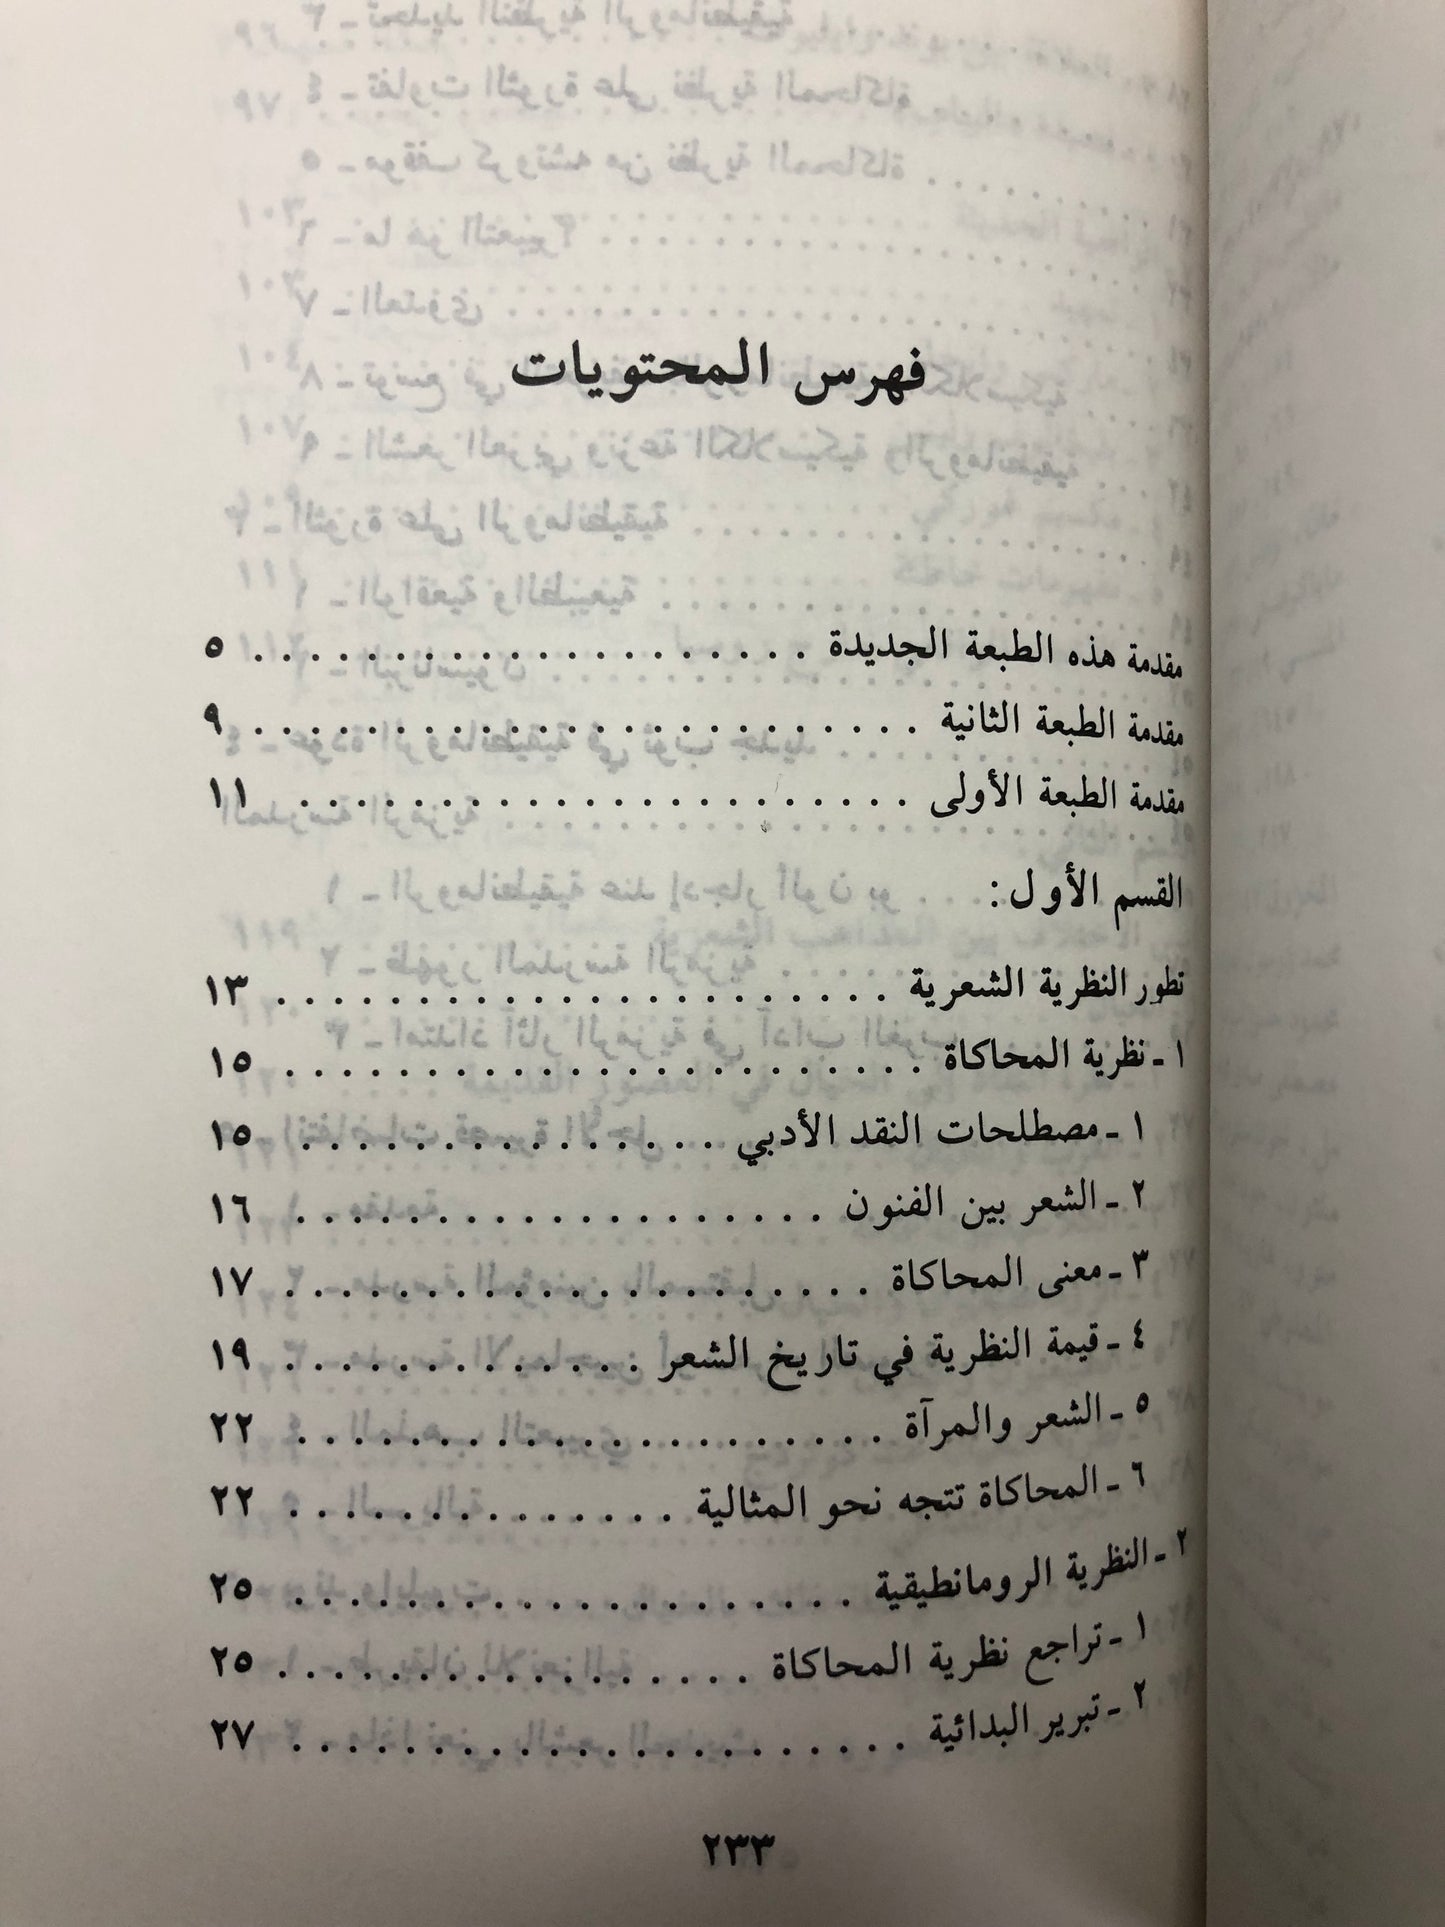 فهرس المحتويات
مقدمة هذه الطبعة الجديدة . . . . . . . . . . . . . . . . . . . . ٥
مقدمة الطبعة الثانية . . . . . . . . . . . . . . . . . . . . . . . . ٩
مقدمة الطبعة الأولى . . . . . . . . . . . . . . . . . . . . . . ١١
القسم الأول:
تطور النظرية الشعرية . . . . . . . . . . . . . . . . . . . . . . ١٣
١ ـ نظرية المحاكاة . . . . . . . . . . . . . . . . . . . . . . . ١٥
١ ـ مصطلحات النقد الأدبي . . . . . . . . . . . . . . . . ١٥
٢ ـ الشعر بين الفنون . . . . . . . . . . . . . . . . . . . ١٦
٣ ـ معنى المحاكاة . . . . . . . . . . . . . . . . . . . . . ١٧
٤ ـ قيمة النظرية في تاريخ الشعر . . . . . . . . . . . . . ١٩
٥ ـ الشعر والمرآة . . . . . . . . . . . . . . . . . . . . . ٢٢
٦ ـ المحاكاة تتجه نحو المثالية . . . . . . . . . . . . . . ٢٢
٢ ـ النظرية الرومانطيقية . . . . . . . . . . . . . . . . . . . . ٢٥
١ ـ تراجع نظرية المحاكاة . . . . . . . . . . . . . . . . . ٢٥
٢ ـ تبرير البدائية . . . . . . . . . . . . . . . . . . . . . . ٢٧
٢٣٣